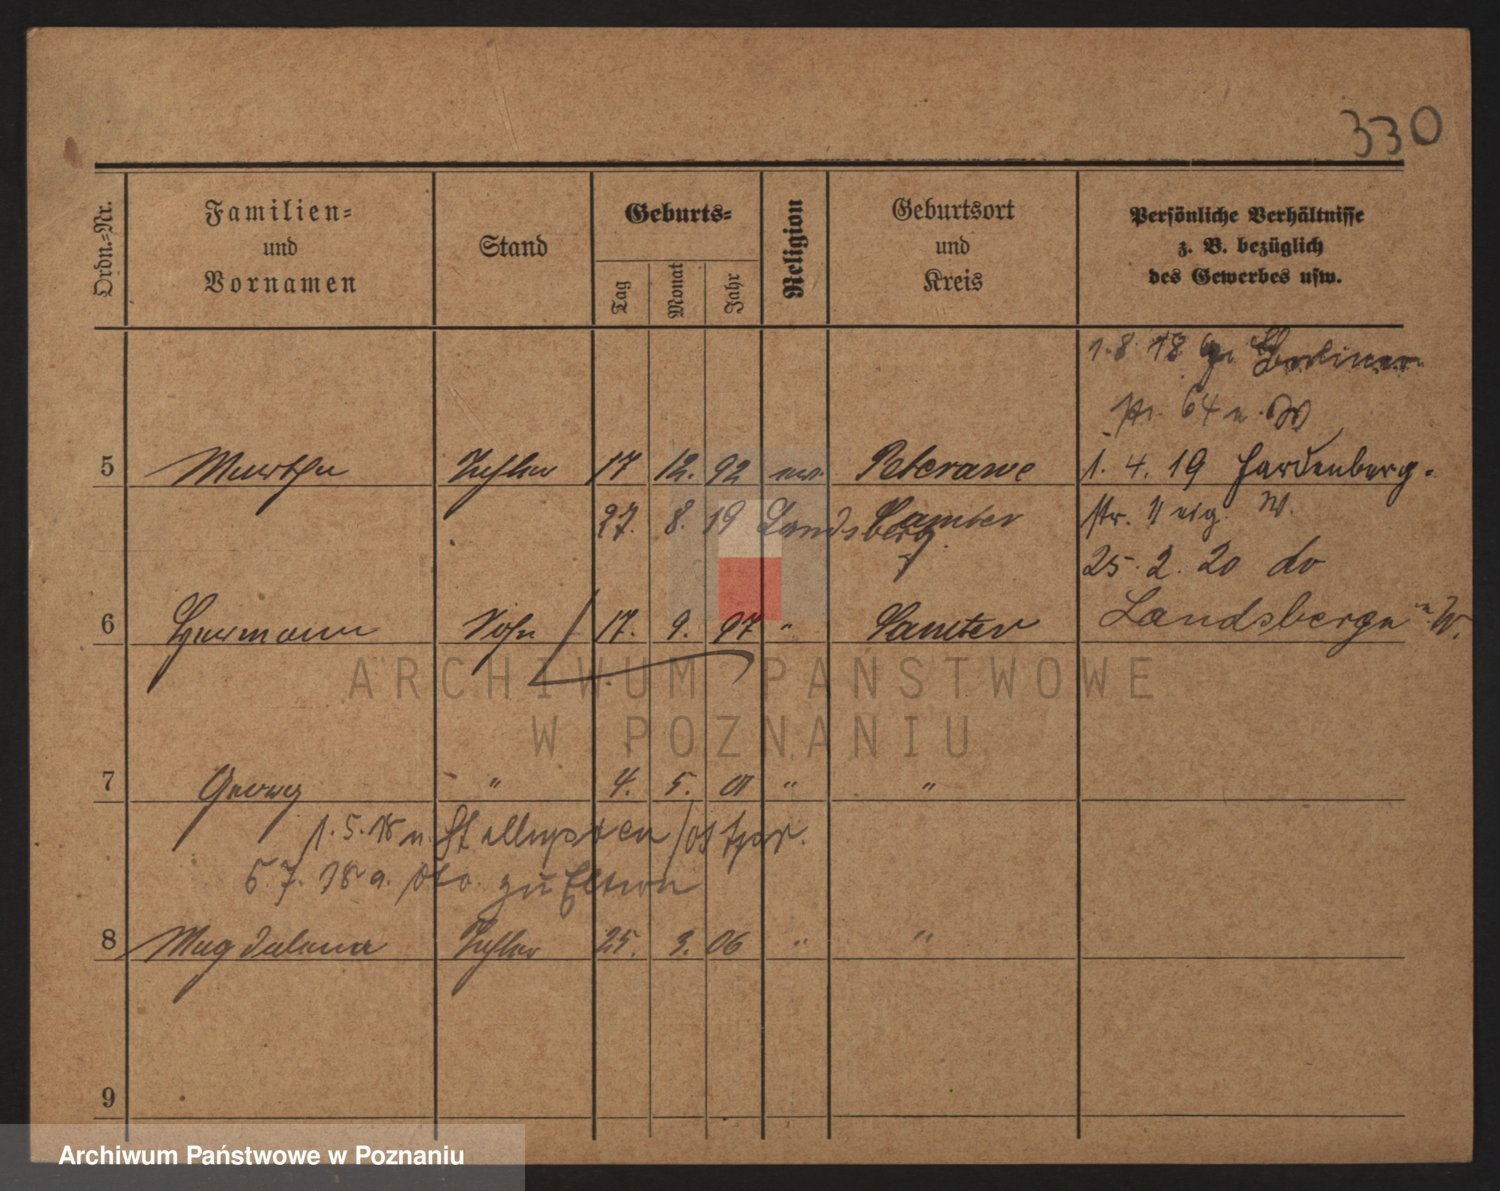 330
Ordn.-Nr.
Familien-
und
Vornamen
Stand
Geburts-
Tag
Monat
Jahr
Religion
Geburtsort
und
Kreis
Persönliche Verhältnisse
z. B. bezüglich
des Gewerbes usw.
1. 8. 18 Berliner
str. 64 n. W
5 Martha Tochter 17 12. 92 ev. Peterawe 1. 4. 19 Hardenberg-
27. 8. 19 Landsberg Samter str. 11 eig. W.
25. 2. 20 do
6 Hermann Sohn 17. 9. 97 " Samter Landsberg W.
7 Georg " 4. 5. 01 " "
1. 5. 18 n.
5. 7. 18 a. zu Eltern
8 Magdalena Tochter 25. 3. 06 " "
9
ARCHIWUM PAŃSTWOWE
W POZNANIU
Archiwum Państwowe w Poznaniu